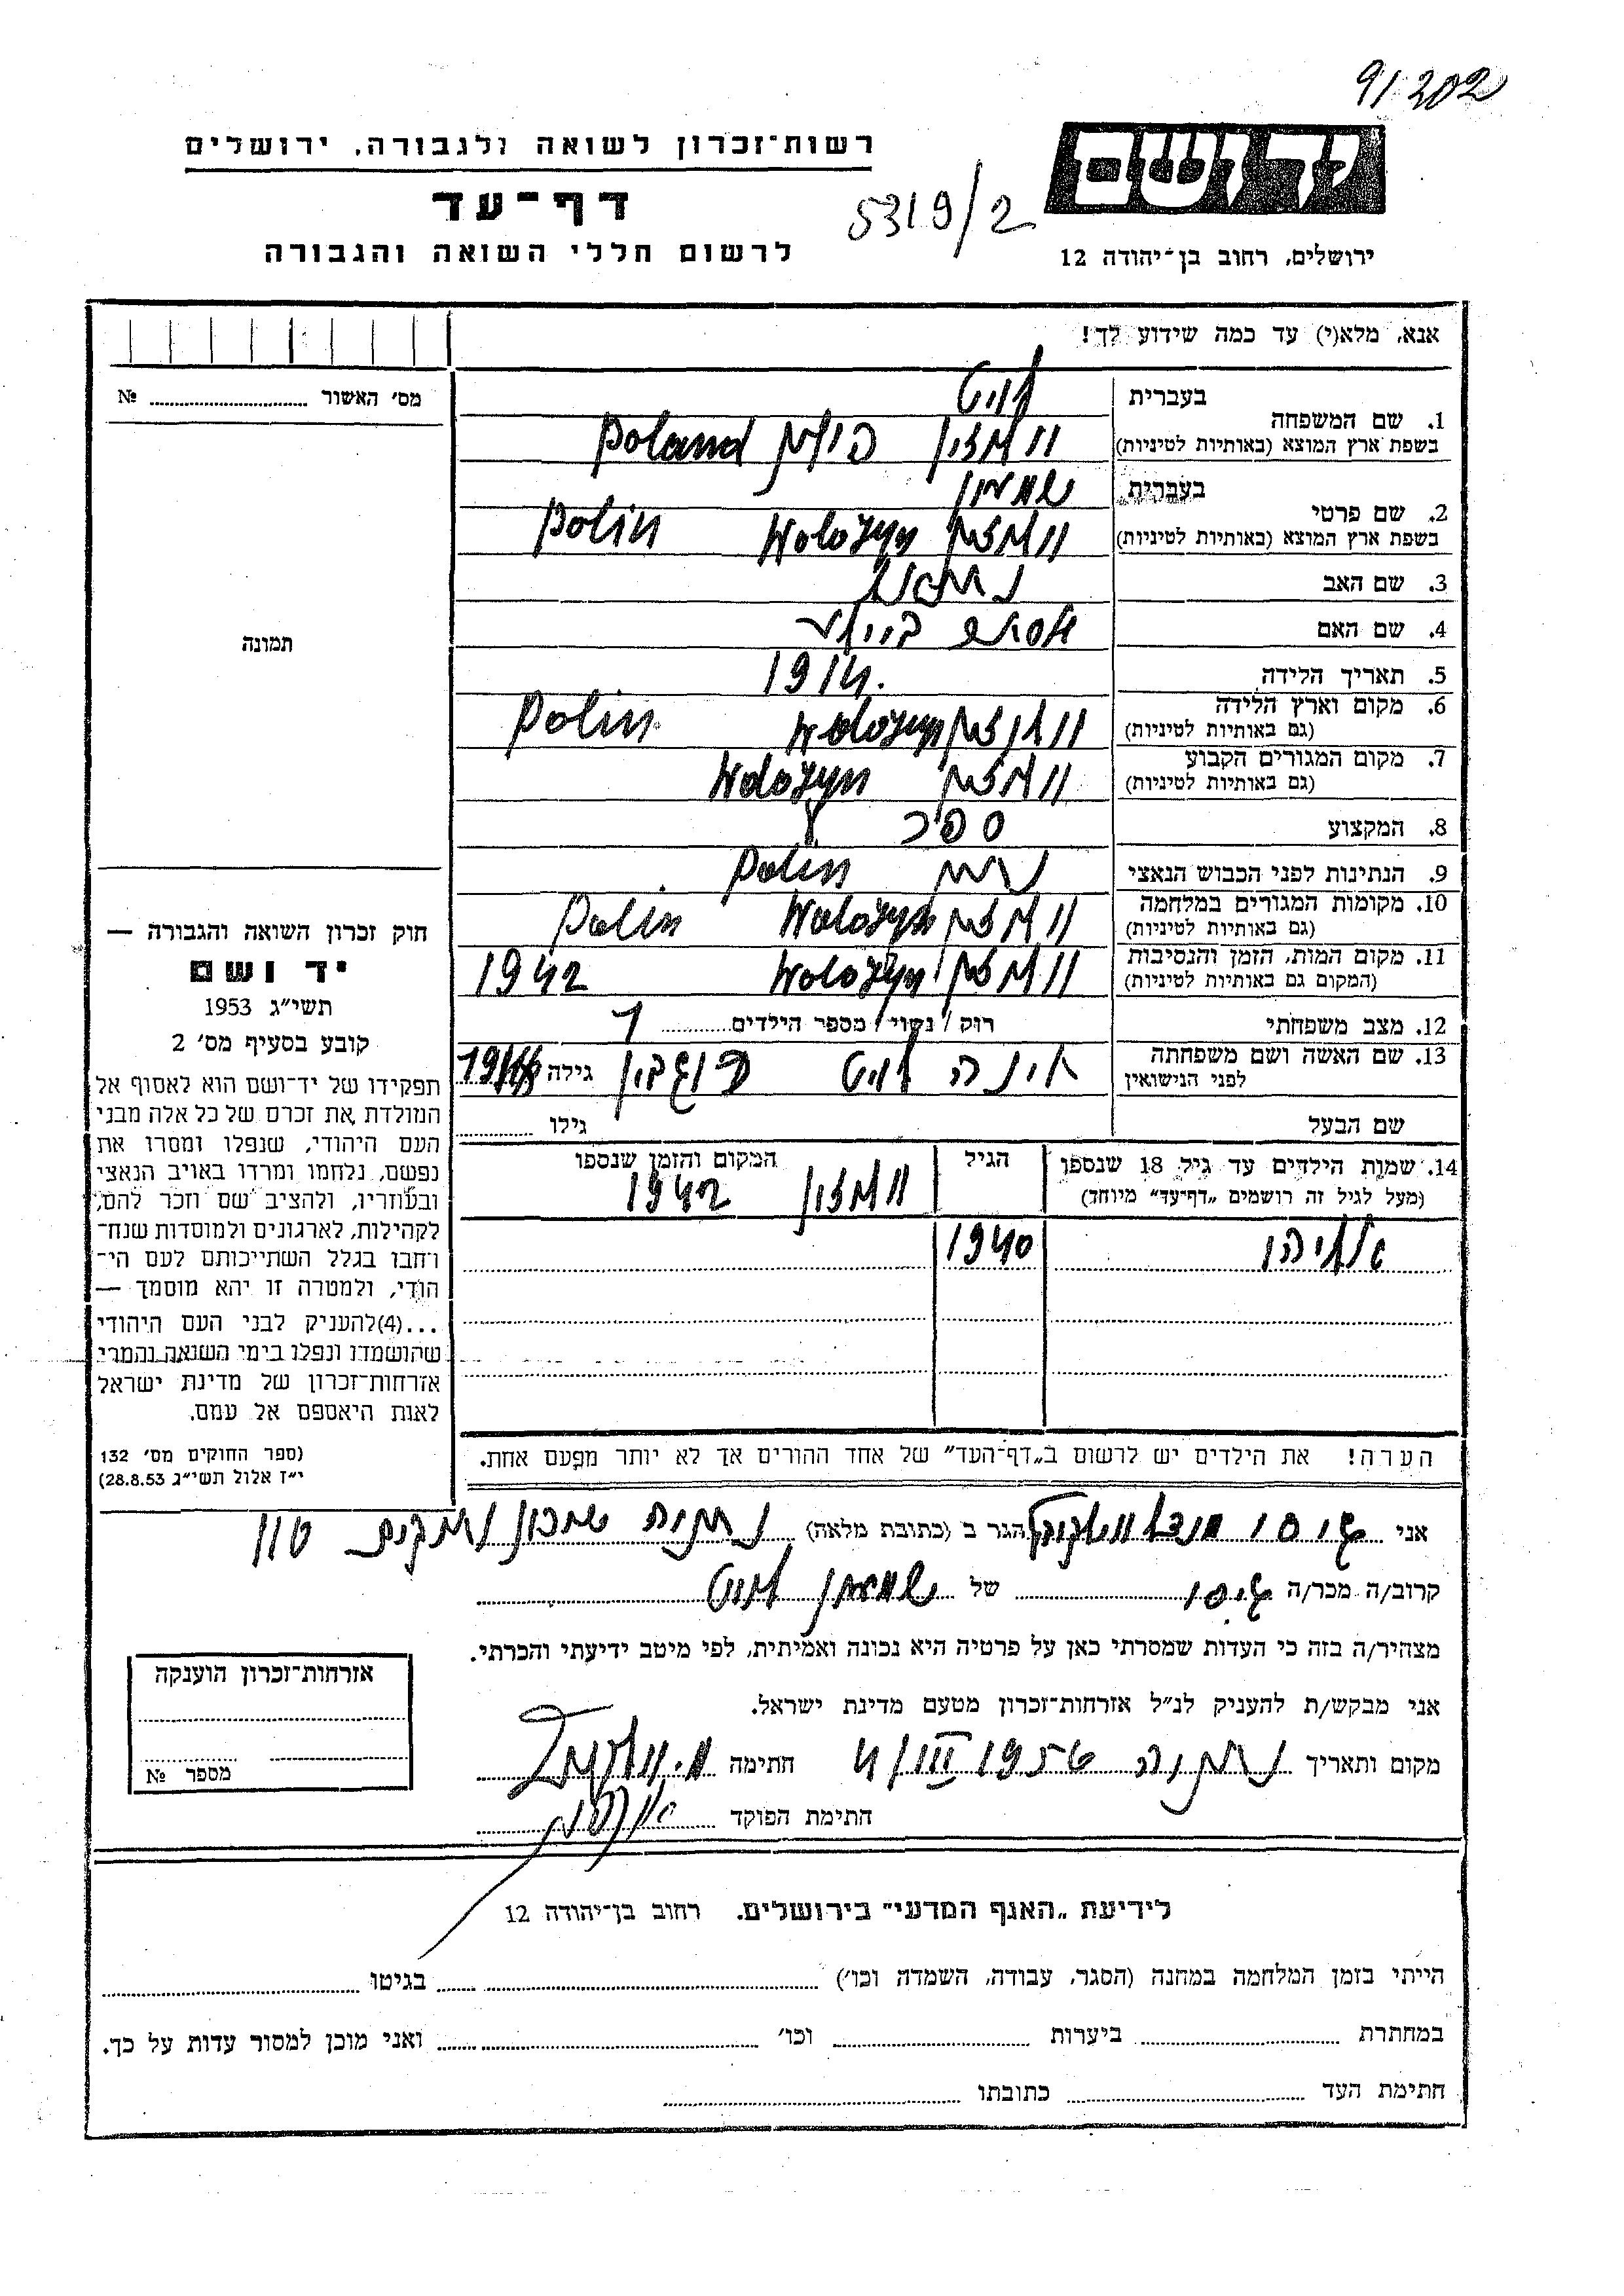 91202
רשות־זכרון לשואה ולגבורה, ירושלים
דף־עד
לרשום חללי השואה והגבורה
5319/2
יד ושם
ירושלים, רחוב בן־יהודה 12
אנא, מלא(י) עד כמה שידוע לך!
מס׳ האשור № 
תמונה
1. שם המשפחה
בעברית
בשפת ארץ המוצא (באותיות לטיניות) פולין Poland
2. שם פרטי
בעברית שמעון
בשפת ארץ המוצא (באותיות לטיניות) Wolozyn Polin
3. שם האב
4. שם האם
5. תאריך הלידה 1914.
6. מקום וארץ הלידה
(גם באותיות לטיניות) Wolozyn Polin
7. מקום המגורים הקבוע
(גם באותיות לטיניות) Wolozyn
8. המקצוע ספר
9. הנתינות לפני הכבוש הנאצי Polin
10. מקומות המגורים במלחמה
(גם באותיות לטיניות) Wolozyn Polin
11. מקום המות, הזמן והנסיבות
(המקום גם באותיות לטיניות) Wolozyn 1942
12. מצב משפחתי רוק / נשוי / מספר הילדים 1
13. שם האשה ושם משפחתה
לפני הנישואין גילה
שם הבעל גילו
14. שמות הילדים עד גיל 18 שנספו
(מעל לגיל זה רושמים „דף־עד” מיוחד)
הגיל
המקום והזמן שנספו
1942
אליהו 1940
הערה! את הילדים יש לרשום ב„דף־העד” של אחד ההורים אך לא יותר מפעם אחת.
חוק זכרון השואה והגבורה —
יד ושם
תשי״ג 1953
קובע בסעיף מס׳ 2
תפקידו של יד־ושם הוא לאסוף אל
המולדת את זכרם של כל אלה מבני
העם היהודי, שנפלו ומסרו את
נפשם, נלחמו ומרדו באויב הנאצי
ובעוזריו, ולהציב שם וזכר להם,
לקהילות, לארגונים ולמוסדות שנח־
רבו בגלל השתייכותם לעם הי־
הודי, ולמטרה זו יהא מוסמך —
...(4)להעניק לבני העם היהודי
שהושמדו ונפלו בימי השואה והמרי
אזרחות־זכרון של מדינת ישראל
לאות היאספם אל עמם.
(ספר החוקים מס׳ 132
י״ז אלול תשי״ג 28.8.53)
אני הגר ב (כתובת מלאה) נתניה שכון
קרוב/ה מכר/ה גיסו של שמעון
מצהיר/ה בזה כי העדות שמסרתי כאן על פרטיה היא נכונה ואמיתית, לפי מיטב ידיעתי והכרתי.
אני מבקש/ת להעניק לנ״ל אזרחות־זכרון מטעם מדינת ישראל.
מקום ותאריך נתניה 4/III 1956 חתימה
חתימת הפוקד
אזרחות־זכרון הוענקה
מספר №
לידיעת „האגף המדעי” בירושלים, רחוב בן־יהודה 12
הייתי בזמן המלחמה במחנה (הסגר, עבודה, השמדה וכו׳) בגיטו
במחתרת ביערות וכו׳ ואני מוכן למסור עדות על כך.
חתימת העד כתובתו